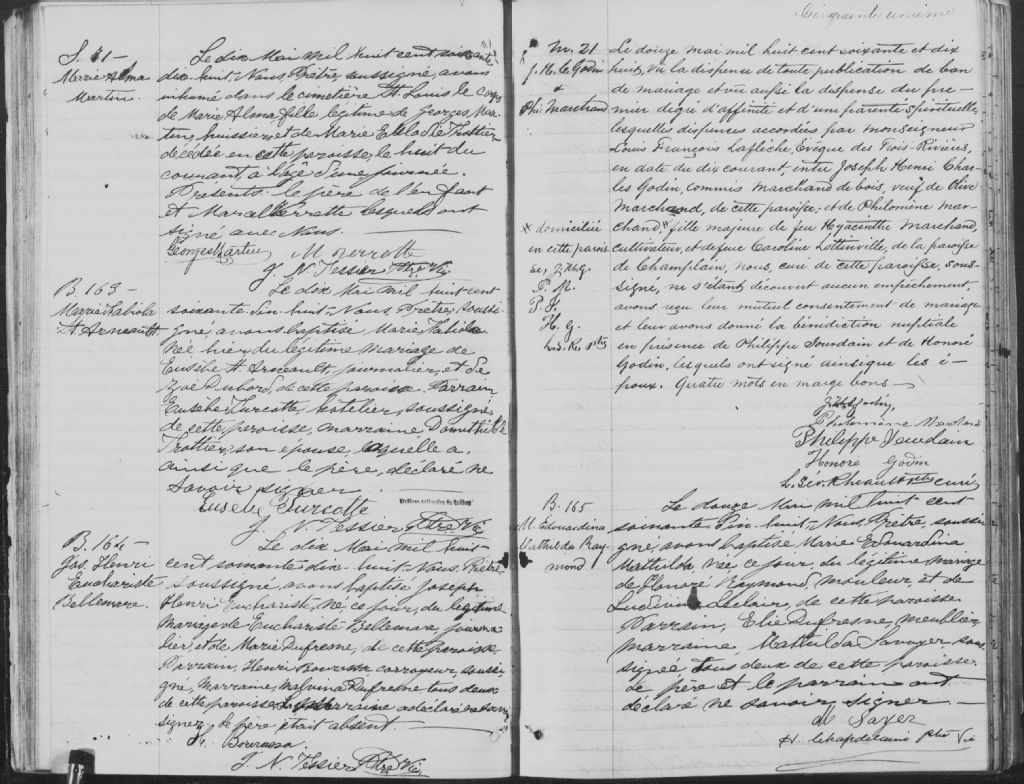 Cinquante unième
S. 71 —
Marie Alma
Martin.
Le dix Mai mil huit cent soixante
dix-huit, Nous, Prêtre, soussigné, avons
inhumé dans le cimetière St. Louis, le corps
de Marie Alma, fille légitime de Georges Mar-
tin, huissier, et de Marie Trottier
décédée en cette paroisse, le huit du
courant, à l'âge d'une journée.
Présents: le père de l'enfant
et lesquels ont
signé avec Nous.
George Martin
J. N. Tessier Ptre Vic
B. 163 —
Marie Fabiola
St. Arneault.
Le dix Mai mil huit cent
soixante dix-huit, Nous, Prêtre, soussi-
gné, avons baptisé Marie Fabiola
née hier, du légitime mariage de
Eusèbe St. Arneault, journalier, et de
Zoé Dubord, de cette paroisse. Parrain,
Eusèbe Turcotte, hôtelier, soussigné,
de cette paroisse, marraine Domithilde
Trottier, son épouse, laquelle a,
ainsi que le père, déclaré ne
savoir signer.
Eusèbe Turcotte
Archives nationales du Québec
J. N. Tessier, Ptre Vic
B. 164 —
Jos. Henri
Euchariste
Bellemare.
Le dix Mai mil huit-
cent soixante dix-huit, Nous, Prêtre,
soussigné, avons baptisé Joseph
Henri Euchariste, né ce jour, du légitime
mariage de Euchariste Bellemare, journa-
lier, et de Marie Dufresne, de cette paroisse
Parrain, Henri Bourassa, corroyeur, soussi-
gné, marraine, Malvina Dufresne tous deux
de cette paroisse. La marraine a déclaré ne savoir
signer, le père était absent.
H. Bourassa
J. N. Tessier Ptre Vic,
M. 21
J. H. C. Godin
&
Phi. Marchand
Le douze mai mil huit cent soixante et dix
huit, vu la dispense de toute publication de ban
de mariage et vu aussi la dispense du pre-
mier degré d'affinité et d'une parenté spirituelle,
lesquelles dispenses accordées par Monseigneur
Louis François Laflèche, Evêque des Trois-Rivières,
en date du dix courant, entre Joseph Henri Char-
les Godin, commis marchand de bois, veuf de Olive
Marchand, de cette paroisse; et de Philomène Mar-
chand, x fille majeure de feu Hyacinthe Marchand,
cultivateur, et defunte Caroline Lottinville, de la paroisse
de Champlain, nous, curé de cette paroisse, sous-
signé, ne s'étant découvert aucun empêchement,
avons reçu leur mutuel consentement de mariage
et leur avons donné la bénédiction nuptiale
en présence de Philippe Jourdain et de Honoré
Godin, lesquels ont signé ainsi que les é-
poux. Quatre mots en marge bons —
x domiciliée
en cette parois-
se, J. H. C. G.
P. M.
P. J.
H. G.
Philomène Marchand
Philippe Jourdain
Honoré Godin
L. Sév. Rheault Ptre curé
B. 165
M. Edouardina
Mathilda Ray-
mond
Le douze Mai mil huit cent
soixante dix-huit, Nous, Prêtre, soussi-
gné, avons baptisé Marie Edouardina
Mathilda, née ce jour, du légitime mariage
de Honoré Raymond, mouleur, et de
Ludivine Leclair, de cette paroisse.
Parrain, Elie Dufresne, meublier,
marraine, Mathilda sous-
signée tous deux de cette paroisse.
Le père et le parrain ont
déclaré ne savoir signer. —